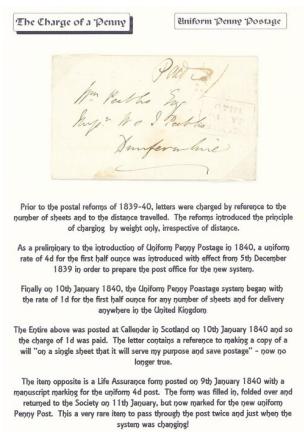 The Charge of a Penny
Uniform Penny Postage
Paid 1
Wm
Esqr
Dunfermline
Prior to the postal reforms of 1839-40, letters were charged by reference to the
number of sheets and to the distance travelled. The reforms introduced the principle
of charging by weight only, irrespective of distance.
As a preliminary to the introduction of Uniform Penny Postage in 1840, a uniform
rate of 4d for the first half ounce was introduced with effect from 5th December
1839 in order to prepare the post office for the new system.
Finally on 10th January 1840, the Uniform Penny Poastage system began with
the rate of 1d for the first half ounce for any number of sheets and for delivery
anywhere in the United Kingdom
The Entire above was posted at Callender in Scotland on 10th January 1840 and so
the charge of 1d was paid. The letter contains a reference to making a copy of a
will "on a single sheet that it will serve my purpose and save postage" - now no
longer true.
The item opposite is a Life Assurance form posted on 9th January 1840 with a
manuscript marking for the uniform 4d post. The form was filled in, folded over and
returned to the Society on 11th January, but now marked for the new uniform
Penny Post. This a very rare item to pass through the post twice and just when the
system was changing!